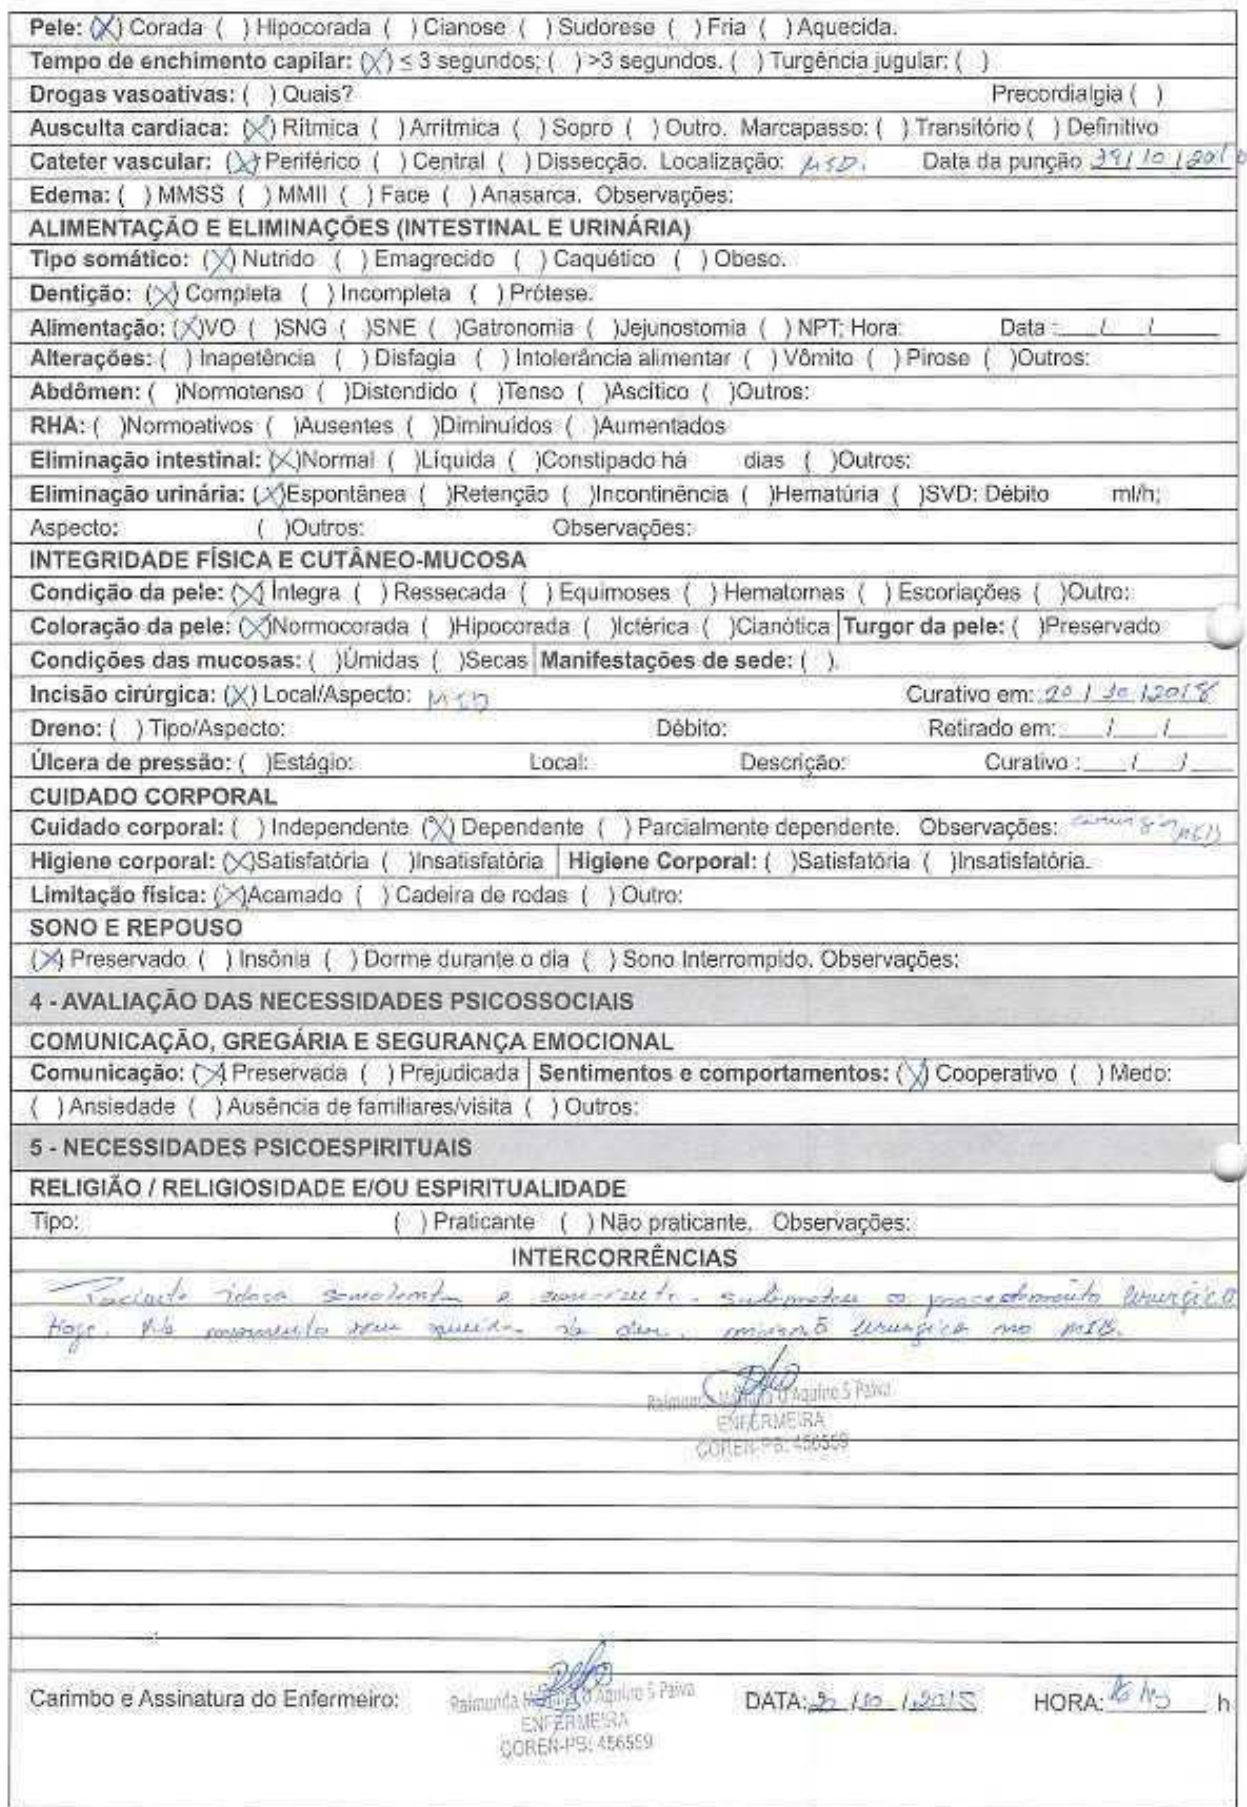 Pele: (X) Corada ( ) Hipocorada ( ) Cianose ( ) Sudorese ( ) Fria ( ) Aquecida.
Tempo de enchimento capilar: (X) ≤ 3 segundos; ( ) >3 segundos. ( ) Turgência jugular: ( )
Drogas vasoativas: ( ) Quais? Precordialgia ( )
Ausculta cardiaca: (X) Rítmica ( ) Arrítmica ( ) Sopro ( ) Outro. Marcapasso: ( ) Transitório ( ) Definitivo
Cateter vascular: (X) Periférico ( ) Central ( ) Dissecção. Localização: MSD. Data da punção /10/
Edema: ( ) MMSS ( ) MMII ( ) Face ( ) Anasarca. Observações:
ALIMENTAÇÃO E ELIMINAÇÕES (INTESTINAL E URINÁRIA)
Tipo somático: (X) Nutrido ( ) Emagrecido ( ) Caquético ( ) Obeso.
Dentição: (X) Completa ( ) Incompleta ( ) Prótese.
Alimentação: (X)VO ( )SNG ( )SNE ( )Gatronomia ( )Jejunostomia ( ) NPT; Hora: Data :___/___/___
Alterações: ( ) Inapetência ( ) Disfagia ( ) Intolerância alimentar ( ) Vômito ( ) Pirose ( )Outros:
Abdômen: ( )Normotenso ( )Distendido ( )Tenso ( )Ascítico ( )Outros:
RHA: ( )Normoativos ( )Ausentes ( )Diminuídos ( )Aumentados
Eliminação intestinal: (X)Normal ( )Líquida ( )Constipado há dias ( )Outros:
Eliminação urinária: (X)Espontânea ( )Retenção ( )Incontinência ( )Hematúria ( )SVD: Débito ml/h;
Aspecto: ( )Outros: Observações:
INTEGRIDADE FÍSICA E CUTÂNEO-MUCOSA
Condição da pele: (X) Íntegra ( ) Ressecada ( ) Equimoses ( ) Hematomas ( ) Escoriações ( )Outro:
Coloração da pele: (X)Normocorada ( )Hipocorada ( )Ictérica ( )Cianótica Turgor da pele: ( )Preservado
Condições das mucosas: ( )Úmidas ( )Secas Manifestações de sede: ( ).
Incisão cirúrgica: (X) Local/Aspecto: MSD Curativo em: 20/10/2018
Dreno: ( ) Tipo/Aspecto: Débito: Retirado em:___/___/___
Úlcera de pressão: ( )Estágio: Local: Descrição: Curativo :___/___/___
CUIDADO CORPORAL
Cuidado corporal: ( ) Independente (X) Dependente ( ) Parcialmente dependente. Observações:
Higiene corporal: (X)Satisfatória ( )Insatisfatória Higiene Corporal: ( )Satisfatória ( )Insatisfatória.
Limitação física: (X)Acamado ( ) Cadeira de rodas ( ) Outro:
SONO E REPOUSO
(X) Preservado ( ) Insônia ( ) Dorme durante o dia ( ) Sono Interrompido. Observações:
4 - AVALIAÇÃO DAS NECESSIDADES PSICOSSOCIAIS
COMUNICAÇÃO, GREGÁRIA E SEGURANÇA EMOCIONAL
Comunicação: (X) Preservada ( ) Prejudicada Sentimentos e comportamentos: (X) Cooperativo ( ) Medo:
( ) Ansiedade ( ) Ausência de familiares/visita ( ) Outros:
5 - NECESSIDADES PSICOESPIRITUAIS
RELIGIÃO / RELIGIOSIDADE E/OU ESPIRITUALIDADE
Tipo: ( ) Praticante ( ) Não praticante. Observações:
INTERCORRÊNCIAS
Paciente idosa sonolenta e consciente. submeteu a procedimento cirurgico
Hoje. No momento sem queixa de dor. cirurgica no
Raimunda D'Aquino S Paiva
ENFERMEIRA
COREN-PB: 456559
Carimbo e Assinatura do Enfermeiro: Raimunda D'Aquino S Paiva DATA: /10/ HORA: h
ENFERMEIRA
COREN-PB: 456559